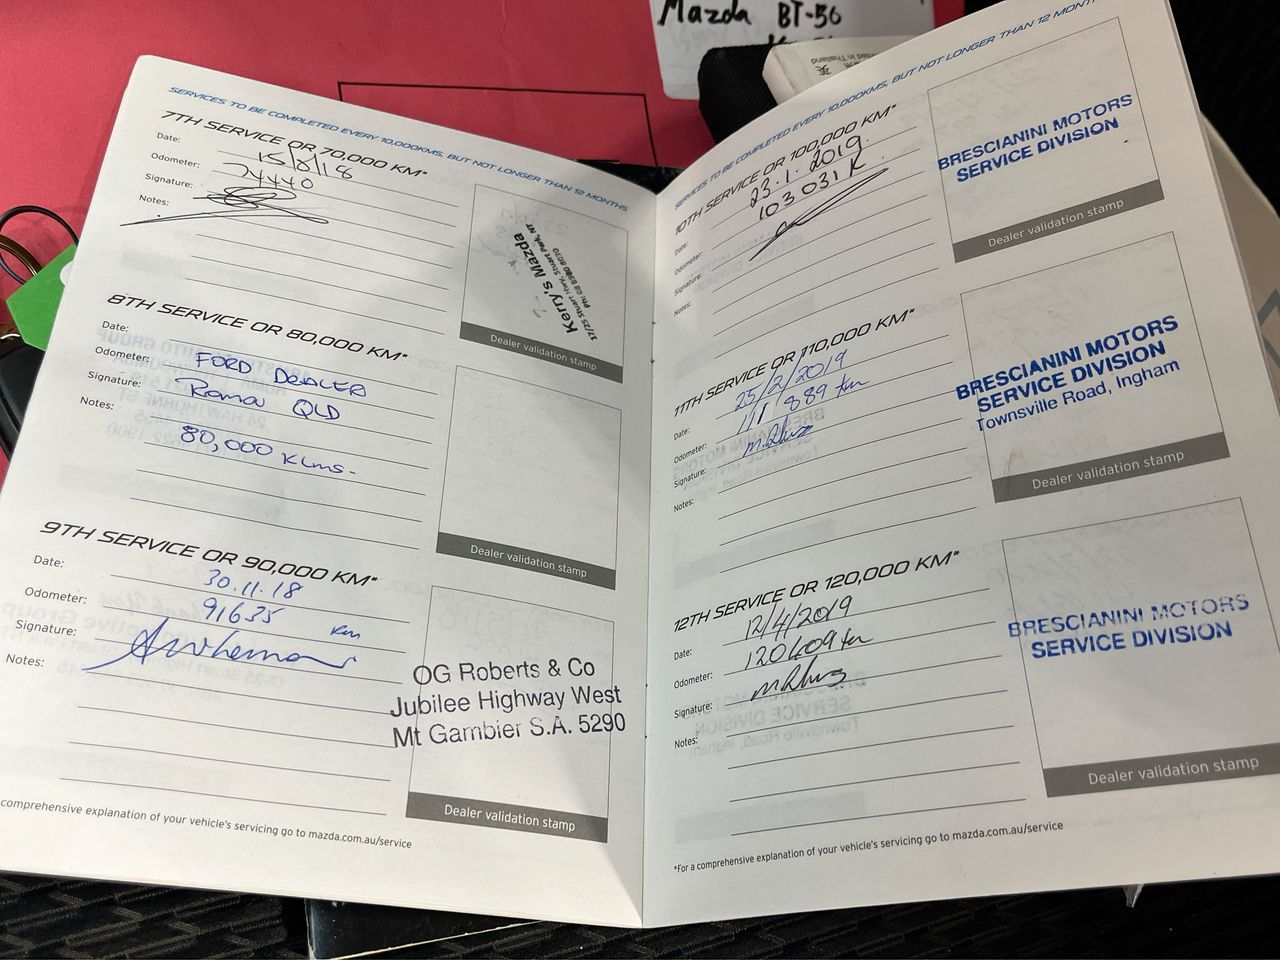 Mazda BT-50
SERVICES TO BE COMPLETED EVERY 10,000KMS, BUT NOT LONGER THAN 12 MONTHS
7TH SERVICE OR 70,000 KM*
Date: 15/8/18
Odometer: 74440
Signature:
Notes:
Kerry's Mazda
17/25 Stuart Hwy, Stuart Park, NT
Ph: 08 8980 8020
Dealer validation stamp
8TH SERVICE OR 80,000 KM*
Date:
Odometer: FORD DEALER
Signature: Roma QLD
Notes: 80,000 KLms-
Dealer validation stamp
9TH SERVICE OR 90,000 KM*
Date: 30.11.18
Odometer: 91635 km
Signature:
Notes:
OG Roberts & Co
Jubilee Highway West
Mt Gambier S.A. 5290
Dealer validation stamp
comprehensive explanation of your vehicle's servicing go to mazda.com.au/service
SERVICES TO BE COMPLETED EVERY 10,000KMS, BUT NOT LONGER THAN 12 MONTHS
10TH SERVICE OR 100,000 KM*
Date: 23.1.2019.
Odometer: 103031K
Signature:
Notes:
BRESCIANINI MOTORS
SERVICE DIVISION
Dealer validation stamp
11TH SERVICE OR 110,000 KM*
Date: 25/2/2019
Odometer: 111 889 km
Signature:
Notes:
BRESCIANINI MOTORS
SERVICE DIVISION
Townsville Road, Ingham
Dealer validation stamp
12TH SERVICE OR 120,000 KM*
Date: 12/4/2019
Odometer: 120409 km
Signature:
Notes:
BRESCIANINI MOTORS
SERVICE DIVISION
Dealer validation stamp
*For a comprehensive explanation of your vehicle's servicing go to mazda.com.au/service